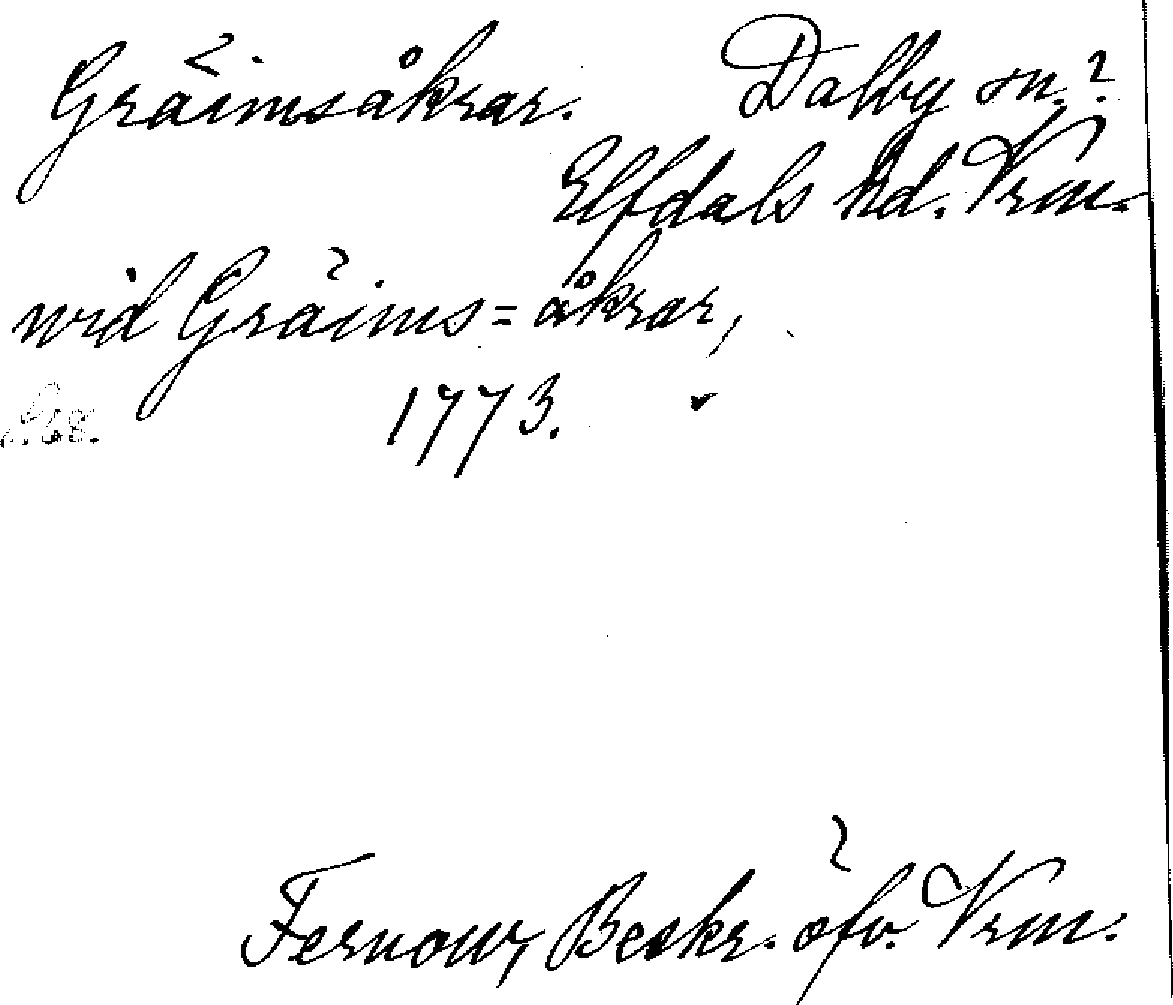 Gräimsåkrar. Dalby sn.?
Elfdals hd. Vrm.
wid Gräims=åkrar,
1773.
Fernow, Beskr. öfv. Vrm.